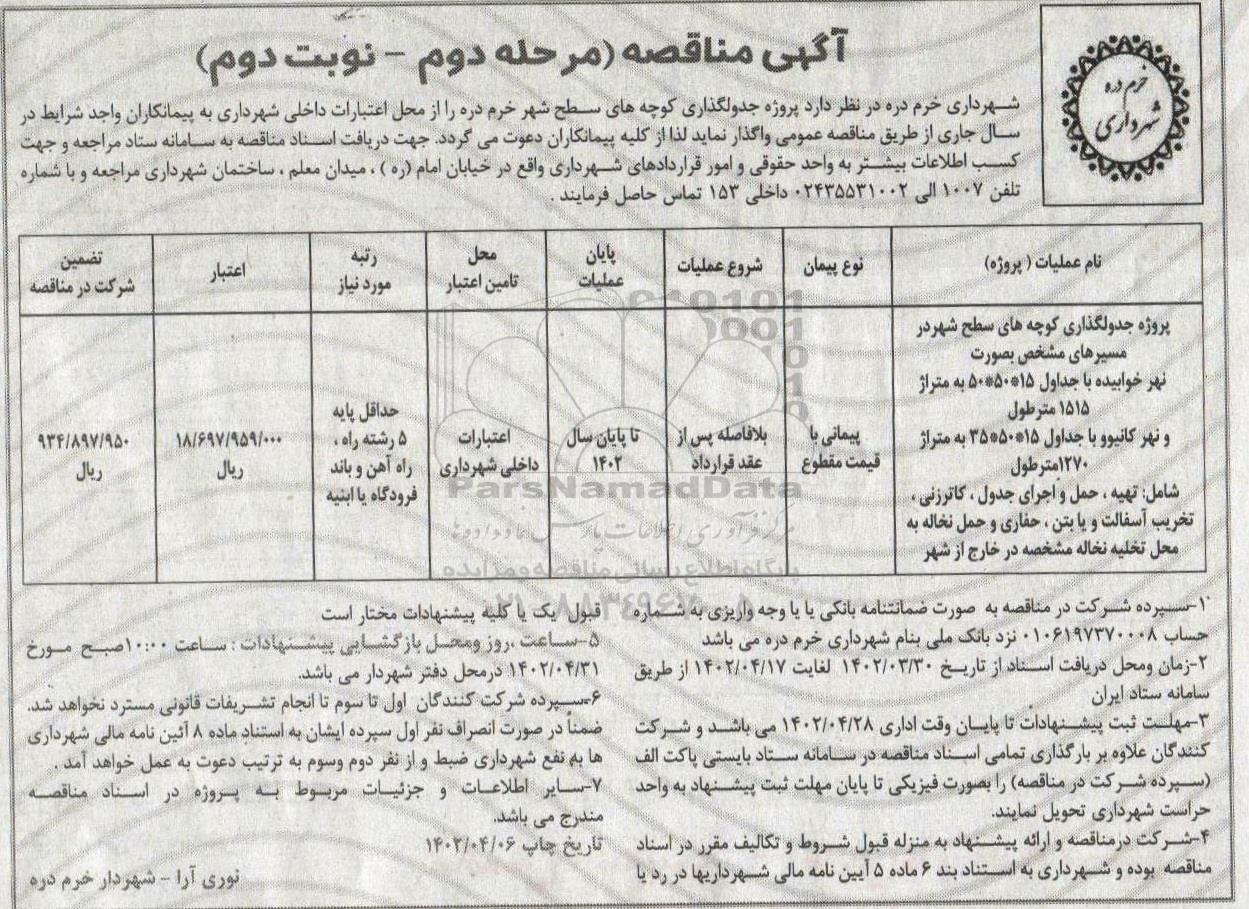 آگهی مناقصه (مرحله دوم - نوبت دوم)
خرم دره
شهرداری
شهرداری خرم دره در نظر دارد پروژه جدولگذاری کوچه های سطح شهر خرم دره را از محل اعتبارات داخلی شهرداری به پیمانکاران واجد شرایط در
سال جاری از طریق مناقصه عمومی واگذار نماید لذا از کلیه پیمانکاران دعوت می گردد. جهت دریافت اسناد مناقصه به سامانه ستاد مراجعه و جهت
کسب اطلاعات بیشتر به واحد حقوقی و امور قراردادهای شهرداری واقع در خیابان امام (ره) ، میدان معلم ، ساختمان شهرداری مراجعه و با شماره
تلفن ۱۰۰۷ الی ۰۲۴۳۵۵۳۱۰۰۲ داخلی ۱۵۳ تماس حاصل فرمایند .
نام عملیات ( پروژه)
نوع پیمان
شروع عملیات
پایان
عملیات
محل
تامین اعتبار
رتبه
مورد نیاز
اعتبار
تضمین
شرکت در مناقصه
پروژه جدولگذاری کوچه های سطح شهردر
مسیرهای مشخص بصورت
نهر خوابیده با جداول ۱۵*۵۰*۵۰ به متراژ
۱۵۱۵ مترطول
و نهر کانیوو با جداول ۱۵*۵۰*۳۵ به متراژ
۱۲۷۰مترطول
شامل: تهیه ، حمل و اجرای جدول ، کاترزنی ،
تخریب آسفالت و یا بتن ، حفاری و حمل نخاله به
محل تخلیه نخاله مشخصه در خارج از شهر
پیمانی با
قیمت مقطوع
بلافاصله پس از
عقد قرارداد
تا پایان سال
۱۴۰۲
اعتبارات
داخلی شهرداری
حداقل پایه
۵ رشته راه ،
راه آهن و باند
فرودگاه یا ابنیه
۱۸/۶۹۷/۹۵۹/۰۰۰
ریال
۹۳۴/۸۹۷/۹۵۰
ریال
ParsNamadData
پایگاه اطلاع رسانی مناقصه و مزایده
۱-سپرده شرکت در مناقصه به صورت ضمانتنامه بانکی یا یا وجه واریزی به شماره
حساب ۰۱۰۶۱۹۷۳۷۰۰۰۸ نزد بانک ملی بنام شهرداری خرم دره می باشد
۲-زمان ومحل دریافت اسناد از تاریخ ۱۴۰۲/۰۳/۳۰ لغایت ۱۴۰۲/۰۴/۱۷ از طریق
سامانه ستاد ایران
۳-مهلت ثبت پیشنهادات تا پایان وقت اداری ۱۴۰۲/۰۴/۲۸ می باشد و شرکت
کنندگان علاوه بر بارگذاری تمامی اسناد مناقصه در سامانه ستاد بایستی پاکت الف
(سپرده شرکت در مناقصه) را بصورت فیزیکی تا پایان مهلت ثبت پیشنهاد به واحد
حراست شهرداری تحویل نمایند.
۴-شرکت درمناقصه و ارائه پیشنهاد به منزله قبول شروط و تکالیف مقرر در اسناد
مناقصه بوده و شهرداری به استناد بند ۶ ماده ۵ آیین نامه مالی شهرداریها در رد یا
قبول یک یا کلیه پیشنهادات مختار است
۵-ساعت ،روز ومحل بازگشایی پیشنهادات : ساعت ۱۰:۰۰صبح مورخ
۱۴۰۲/۰۴/۳۱ درمحل دفتر شهردار می باشد.
۶-سپرده شرکت کنندگان اول تا سوم تا انجام تشریفات قانونی مسترد نخواهد شد.
ضمناً در صورت انصراف نفر اول سپرده ایشان به استناد ماده ۸ آئین نامه مالی شهرداری
ها به نفع شهرداری ضبط و از نفر دوم وسوم به ترتیب دعوت به عمل خواهد آمد .
۷-سایر اطلاعات و جزئیات مربوط به پروژه در اسناد مناقصه
مندرج می باشد.
تاریخ چاپ ۱۴۰۲/۰۴/۰۶
نوری آرا - شهردار خرم دره